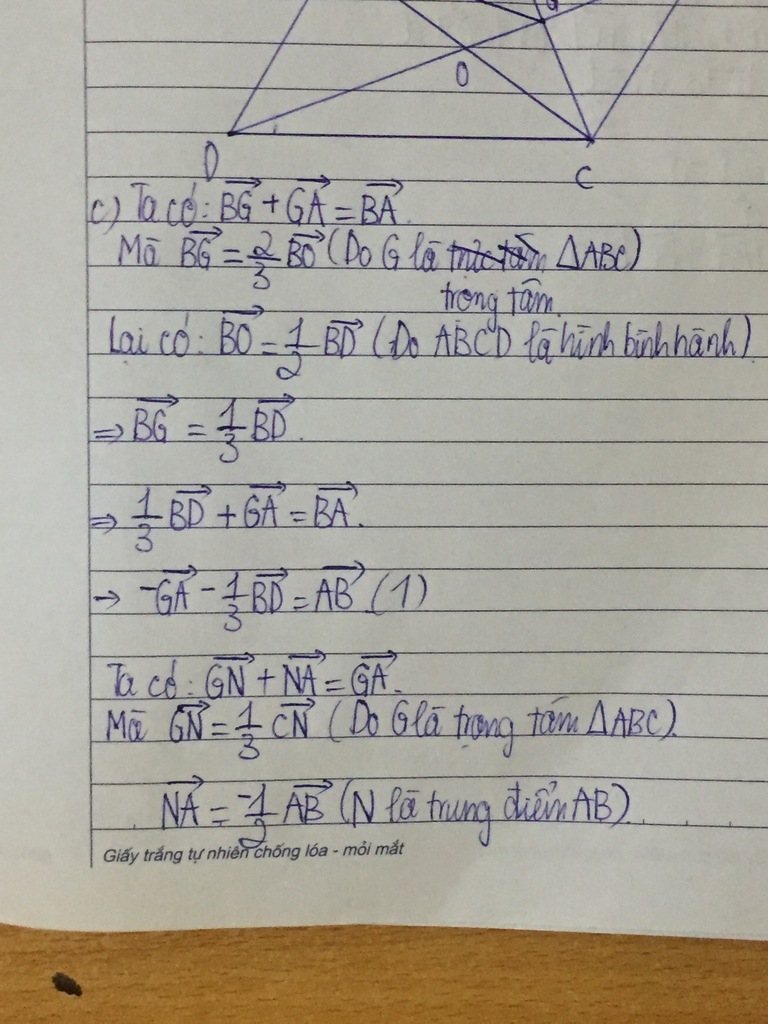 G
O
D
C
c) Ta có: $\overrightarrow{BG} + \overrightarrow{GA} = \overrightarrow{BA}$.
Mà $\overrightarrow{BG} = \frac{2}{3} \overrightarrow{BO}$ (Do G là ~~trực tâm~~ ΔABC)
trọng tâm.
Lại có: $\overrightarrow{BO} = \frac{1}{2} \overrightarrow{BD}$ (Do ABCD là hình bình hành)
⇒ $\overrightarrow{BG} = \frac{1}{3} \overrightarrow{BD}$.
⇒ $\frac{1}{3} \overrightarrow{BD} + \overrightarrow{GA} = \overrightarrow{BA}$.
→ $-\overrightarrow{GA} - \frac{1}{3} \overrightarrow{BD} = \overrightarrow{AB}$ (1)
Ta có: $\overrightarrow{GN} + \overrightarrow{NA} = \overrightarrow{GA}$.
Mà $\overrightarrow{GN} = \frac{1}{3} \overrightarrow{CN}$ (Do G là trọng tâm ΔABC).
$\overrightarrow{NA} = \frac{-1}{2} \overrightarrow{AB}$ (N là trung điểm AB).
Giấy trắng tự nhiên chống lóa - mỏi mắt